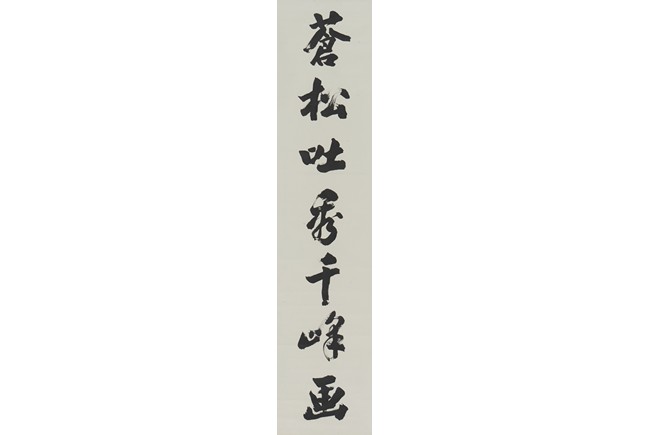 蒼松吐秀千峰画